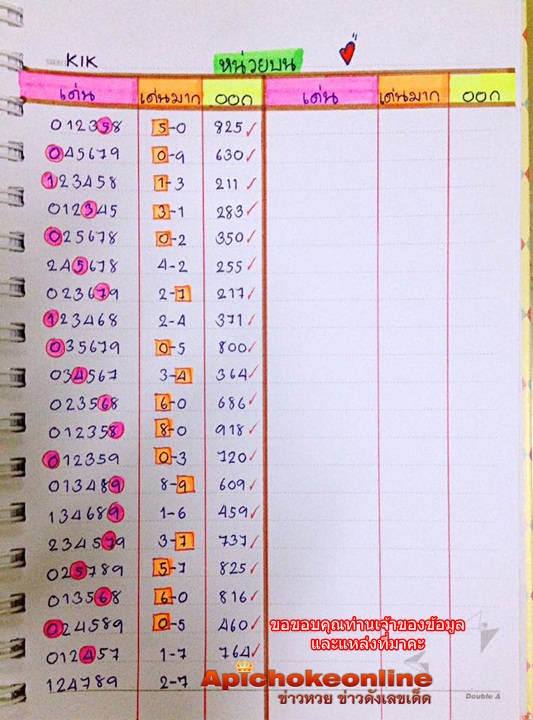 KIK
หน่วยบน
เด่น เด่นมาก ออก เด่น เด่นมาก ออก
012358 5-0 825 ✓
045679 0-9 630 ✓
123458 1-3 211 ✓
012345 3-1 283 ✓
025678 0-2 350 ✓
245678 4-2 255 ✓
023679 2-7 217 ✓
123468 2-4 371 ✓
035679 0-5 800 ✓
034567 3-4 364 ✓
023568 6-0 686 ✓
012358 8-0 918 ✓
012359 0-3 720 ✓
013489 8-9 609 ✓
134689 1-6 459 ✓
234579 3-7 737 ✓
025789 5-7 825 ✓
013568 6-0 816 ✓
024589 0-5 460 ✓
012457 1-7 764 ✓
124789 2-7
ขอขอบคุณท่านเจ้าของข้อมูล
และแหล่งที่มาคะ
Apichokeonline
ข่าวหวย ข่าวดังเลขเด็ด
Double A